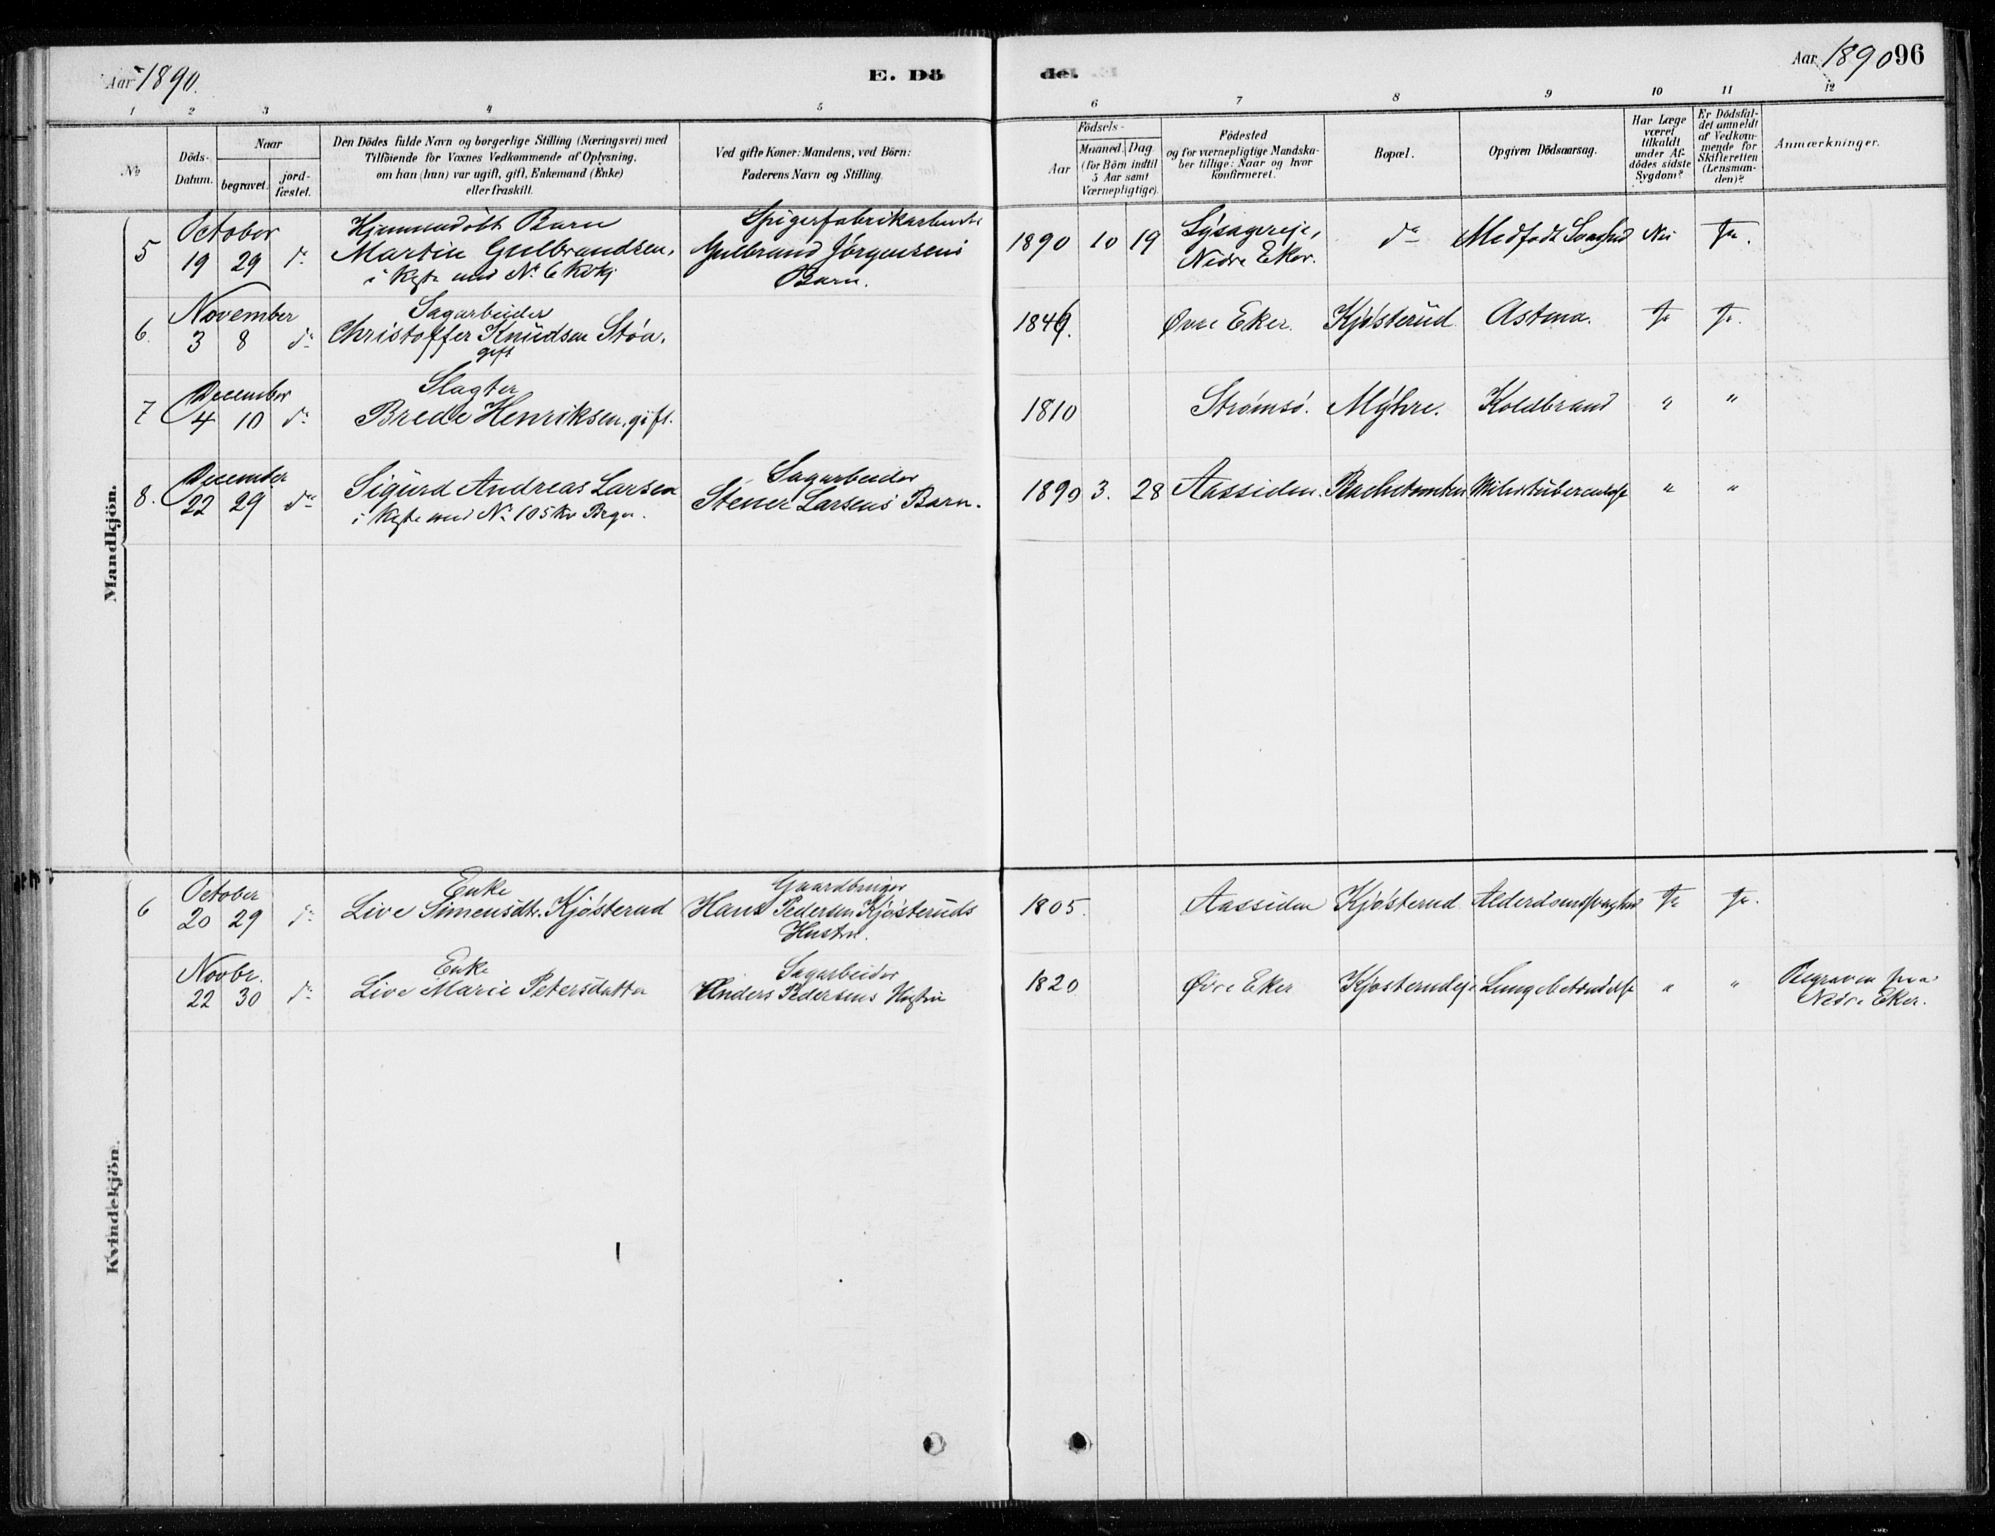 Aar 1890.
E. Dö
del.
Aar 1890 96
1 2 3 4 5 6 7 8 9 10 11 12
No
Döds-
Datum.
Naar
begravet.
jord-
fæstet.
Den Dödes fulde Navn og borgerlige Stilling (Næringsvei) med
Tilföiende for Voxnes Vedkommende af Oplysning,
om han (hun) var ugift, gift, Enkemand (Enke)
eller fraskilt.
Ved gifte Koner: Mandens, ved Börn:
Faderens Navn og Stilling.
Födsels-
Aar
Maaned. Dag
(for Börn indtil
5 Aar samt
Værnepligtige).
Födested
og for værnepligtige Mandska-
ber tillige: Naar og hvor
konfirmeret.
Bopæl.
Opgiven Dödsaarsag.
Har Læge
været
tilkaldt
under Af-
dödes sidste
Sygdom?
Er Dödsfal-
det anmeldt
af Vedkom-
mende for
Skifteretten
(Lensman-
den)?
Anmærkninger.
Mandkjön.
October Hjemmedöbt Barn Spigerfabrikarbeider
5 19 29 do Martin Gulbrandsen, Gulbrand Jörgensens 1890 10 19 Nedre Eker. do Medfödt Svaghed Nei Ja.
i Kiste med No 6 Barn.
November Sagarbeider
6. 3 8 do Christoffer Knudsen Stöa, Øvre Eker. Kjøsterud Astma. Ja Ja.
gift
December Slagter
7 4 10 do Brede Henriksen, gift. 1810 Strømsø. Myhre. Koldbrand " "
December Sagarbeider
8. 22 29 do Sigurd Andreas Larsen Stener Larsens Barn. 1890 3. 28 Aassiden. " "
i Kiste med No 105
Kvindekjön.
October Enke Gaardbruger
6 20 29 do Live Simensdt. Kjøsterud Hans Pedersen Kjøsteruds 1805. Aassiden Kjøsterud Alderdomssvaghed Ja Ja.
Hustru.
Novbr. Enke Sagarbeider
22 30 do Live Marie Petersdatter Anders Pedersens Hustru 1820 Øvre Eker Kjøsterudeje Lungebetændelse " " Begraven paa
Nedre Eker.